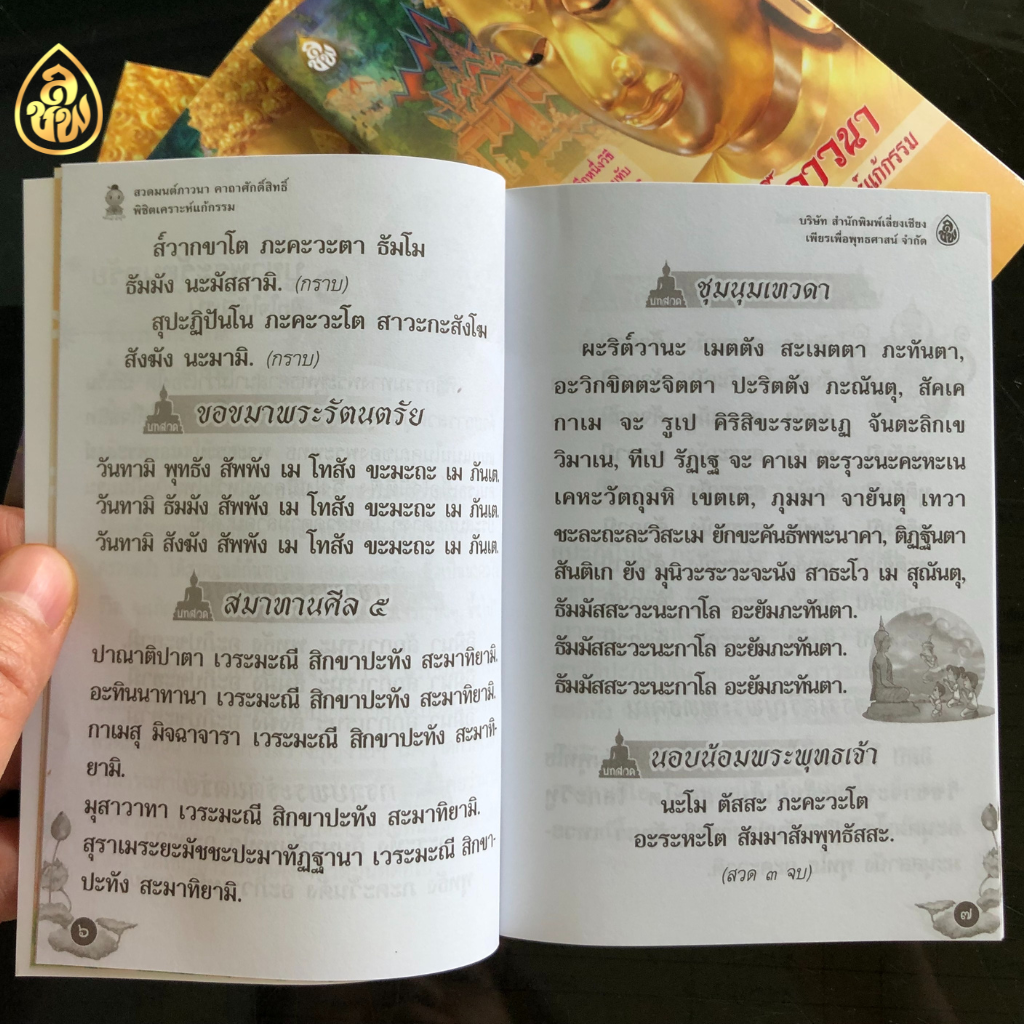 ลชพ
ภาวนา
แก้กรรม
สวดมนต์ภาวนา คาถาศักดิ์สิทธิ์
พิชิตเคราะห์แก้กรรม
ส๎วากขาโต ภะคะวะตา ธัมโม
ธัมมัง นะมัสสามิ. (กราบ)
สุปะฏิปันโน ภะคะวะโต สาวะกะสังโฆ
สังฆัง นะมามิ. (กราบ)
บทสวด ขอขมาพระรัตนตรัย
วันทามิ พุทธัง สัพพัง เม โทสัง ขะมะถะ เม ภันเต.
วันทามิ ธัมมัง สัพพัง เม โทสัง ขะมะถะ เม ภันเต.
วันทามิ สังฆัง สัพพัง เม โทสัง ขะมะถะ เม ภันเต.
บทสวด สมาทานศีล ๕
ปาณาติปาตา เวระมะณี สิกขาปะทัง สะมาทิยามิ.
อะทินนาทานา เวระมะณี สิกขาปะทัง สะมาทิยามิ.
กาเมสุ มิจฉาจารา เวระมะณี สิกขาปะทัง สะมาทิ-
ยามิ.
มุสาวาทา เวระมะณี สิกขาปะทัง สะมาทิยามิ.
สุราเมระยะมัชชะปะมาทัฏฐานา เวระมะณี สิกขา-
ปะทัง สะมาทิยามิ.
๖
บริษัท สำนักพิมพ์เลี่ยงเชียง
เพียรเพื่อพุทธศาสน์ จำกัด
บทสวด ชุมนุมเทวดา
ผะริต๎วานะ เมตตัง สะเมตตา ภะทันตา,
อะวิกขิตตะจิตตา ปะริตตัง ภะณันตุ, สัคเค
กาเม จะ รูเป คิริสิขะระตะเฏ จันตะลิกเข
วิมาเน, ทีเป รัฏเฐ จะ คาเม ตะรุวะนะคะหะเน
เคหะวัตถุมหิ เขตเต, ภุมมา จายันตุ เทวา
ชะละถะละวิสะเม ยักขะคันธัพพะนาคา, ติฏฐันตา
สันติเก ยัง มุนิวะระวะจะนัง สาธะโว เม สุณันตุ,
ธัมมัสสะวะนะกาโล อะยัมภะทันตา.
ธัมมัสสะวะนะกาโล อะยัมภะทันตา.
ธัมมัสสะวะนะกาโล อะยัมภะทันตา.
บทสวด นอบน้อมพระพุทธเจ้า
นะโม ตัสสะ ภะคะวะโต
อะระหะโต สัมมาสัมพุทธัสสะ.
(สวด ๓ จบ)
๗